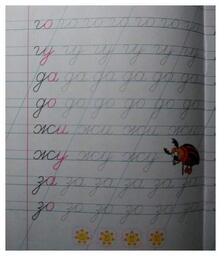 го го го го го го
гу гу гу гу гу гу
да да да да да да
до до до до до до
жи жи жи жи
жу жу жу
за за за за за за
зо зо зо зо зо зо